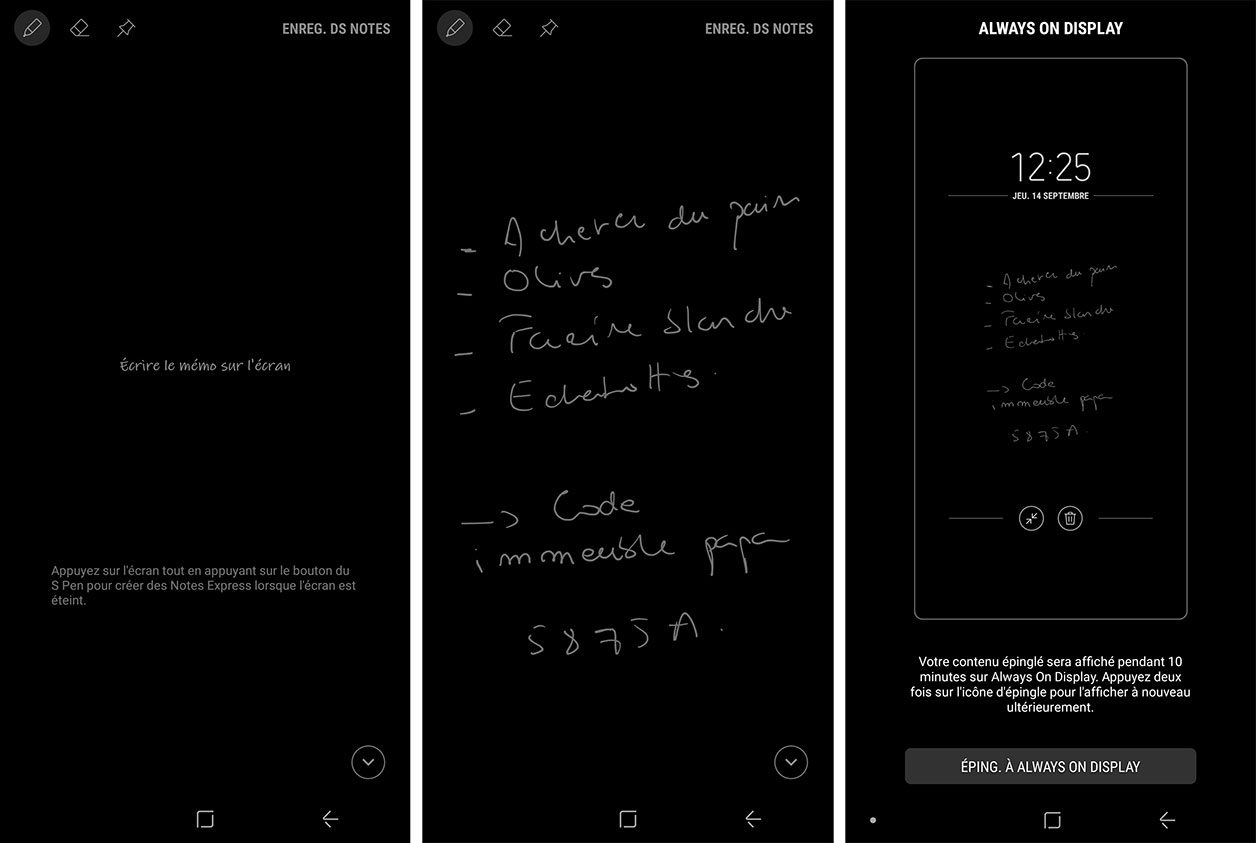 ENREG. DS NOTES
Écrire le mémo sur l'écran
Appuyez sur l'écran tout en appuyant sur le bouton du
S Pen pour créer des Notes Express lorsque l'écran est
éteint.
ENREG. DS NOTES
- Acheter du pain
- Olives
- Farine blanche
- Echalottes.
—> Code
immeuble papa
5875A.
ALWAYS ON DISPLAY
12:25
JEU. 14 SEPTEMBRE
- Acheter du pain
- Olives
- Farine blanche
- Echalottes.
—> Code
immeuble papa
5875A.
Votre contenu épinglé sera affiché pendant 10
minutes sur Always On Display. Appuyez deux
fois sur l'icône d'épingle pour l'afficher à nouveau
ultérieurement.
ÉPING. À ALWAYS ON DISPLAY